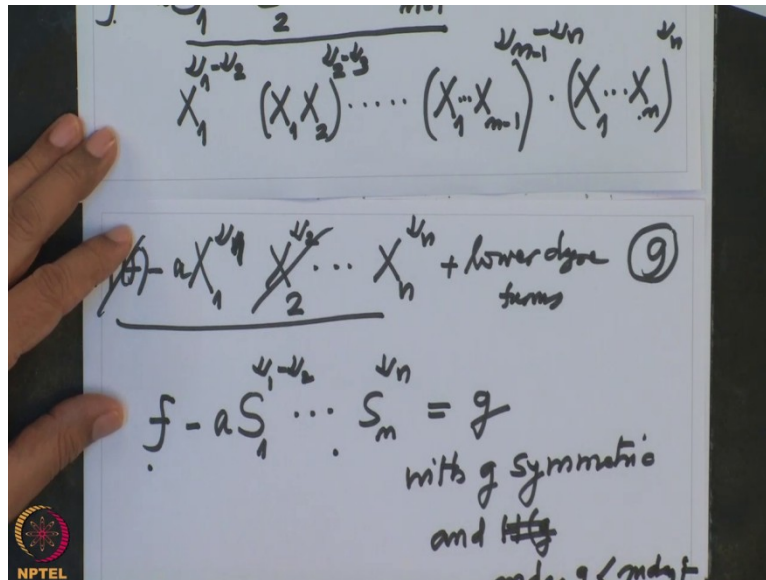 X_1^{ν_1-ν_2} (X_1 X_2)^{ν_2-ν_3} ..... (X_1 ... X_{n-1})^{ν_{n-1}-ν_n} · (X_1 ... X_n)^{ν_n}
- a X_1^{ν_1} X_2^{ν_2} ... X_n^{ν_n} + lower degree ⑨
terms
f - a S_1^{ν_1-ν_2} ... S_n^{ν_n} = g
with g symmetric
and
NPTEL